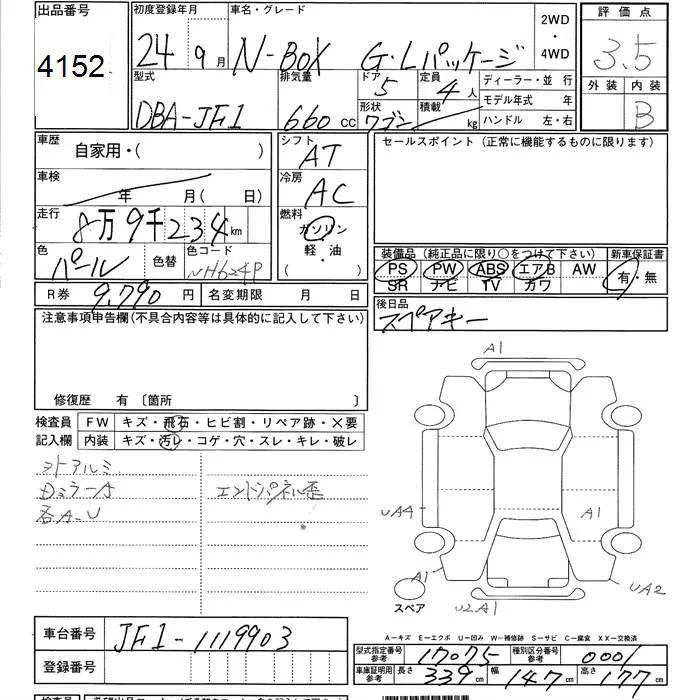 出品番号 初度登録年月日 車名・グレード 2WD・4WD 評価点
4152 24年 9月 N-BOX G・Lパッケージ 3.5
型式 排気量 ドア 定員 ディーラー・並行 外装 内装
DBA-JF1 660cc 5 4人 モデル年式 年 B
形状 積載 ハンドル 左・右
ワゴン kg
車歴 シフト セールスポイント(正常に機能するものに限ります)
自家用・( ) AT
車検 年 月(日) 冷房 AC
走行 8万9千234km 燃料 ガソリン
軽・油
( )
色 パール 色替 色コード NH624P 装備品(純正品に限り○をつけて下さい) 新車保証書
PS PW ABS エアB AW 有・無
SR ナビ TV カワ
R券 9,790円 名変期限 月 日 後日品
スペアキー
注意事項申告欄(不具合内容等は具体的に記入して下さい)
修復歴 有〔箇所 〕
検査員 FW キズ・飛石・ヒビ割・リペア跡・X要
記入欄 内装 キズ・汚レ・コゲ・穴・スレ・キレ・破レ
ヨトアルミ
DミラーA エンドパネル歪
各A.U
A1
UA4
A1
A1
UA2
U2 A1
スペア
A-キズ E-エクボ U-凹み W-補修跡 S-サビ C-腐食 XX-交換済
車台番号 JF1-1119903
型式指定番号 参考 17075 種別区分番号 参考 0001
登録番号
車庫証明用 参考 長さ 339cm 幅 147cm 高さ 177cm